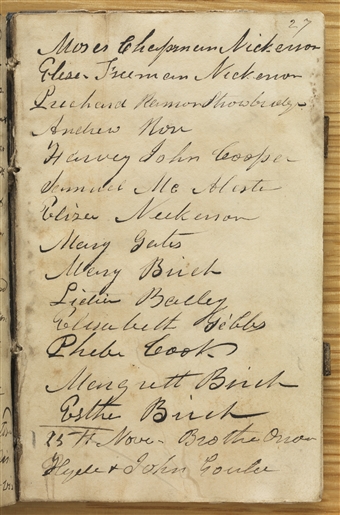 27
Moses Chapman Nickerson
Eliza Freeman Nickerson
Prichard Ramon Strowbridge
Andrew Rose
Harvey John Cooper
Samuel Mc Alister
Eliza Neckerson
Mary Gates
Mary Birch
Lidia Bailey
Elisabeth Gibbs
Phebe Cook
Margrett Birch
Esthe Birch
15th Nove. Brother Orson
Hyde & John Goule